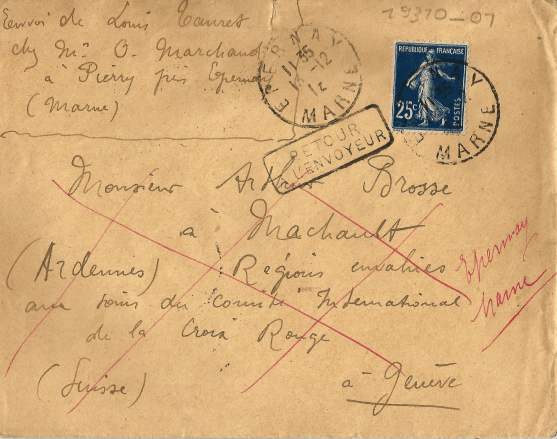 Envoi de Louis
chez Mr O. Marchand
à Pierry près Epernay
(Marne)
19310-01
EPERNAY
11 35
13-12
MARNE
REPUBLIQUE FRANÇAISE
25c
POSTES
MARNE
RETOUR
A L'ENVOYEUR
Monsieur Arthur Brosse
à Machault
(Ardennes) Régions envahies
aux soins du comité International
de la Croix Rouge
(Suisse) à Genève
Epernay
Marne